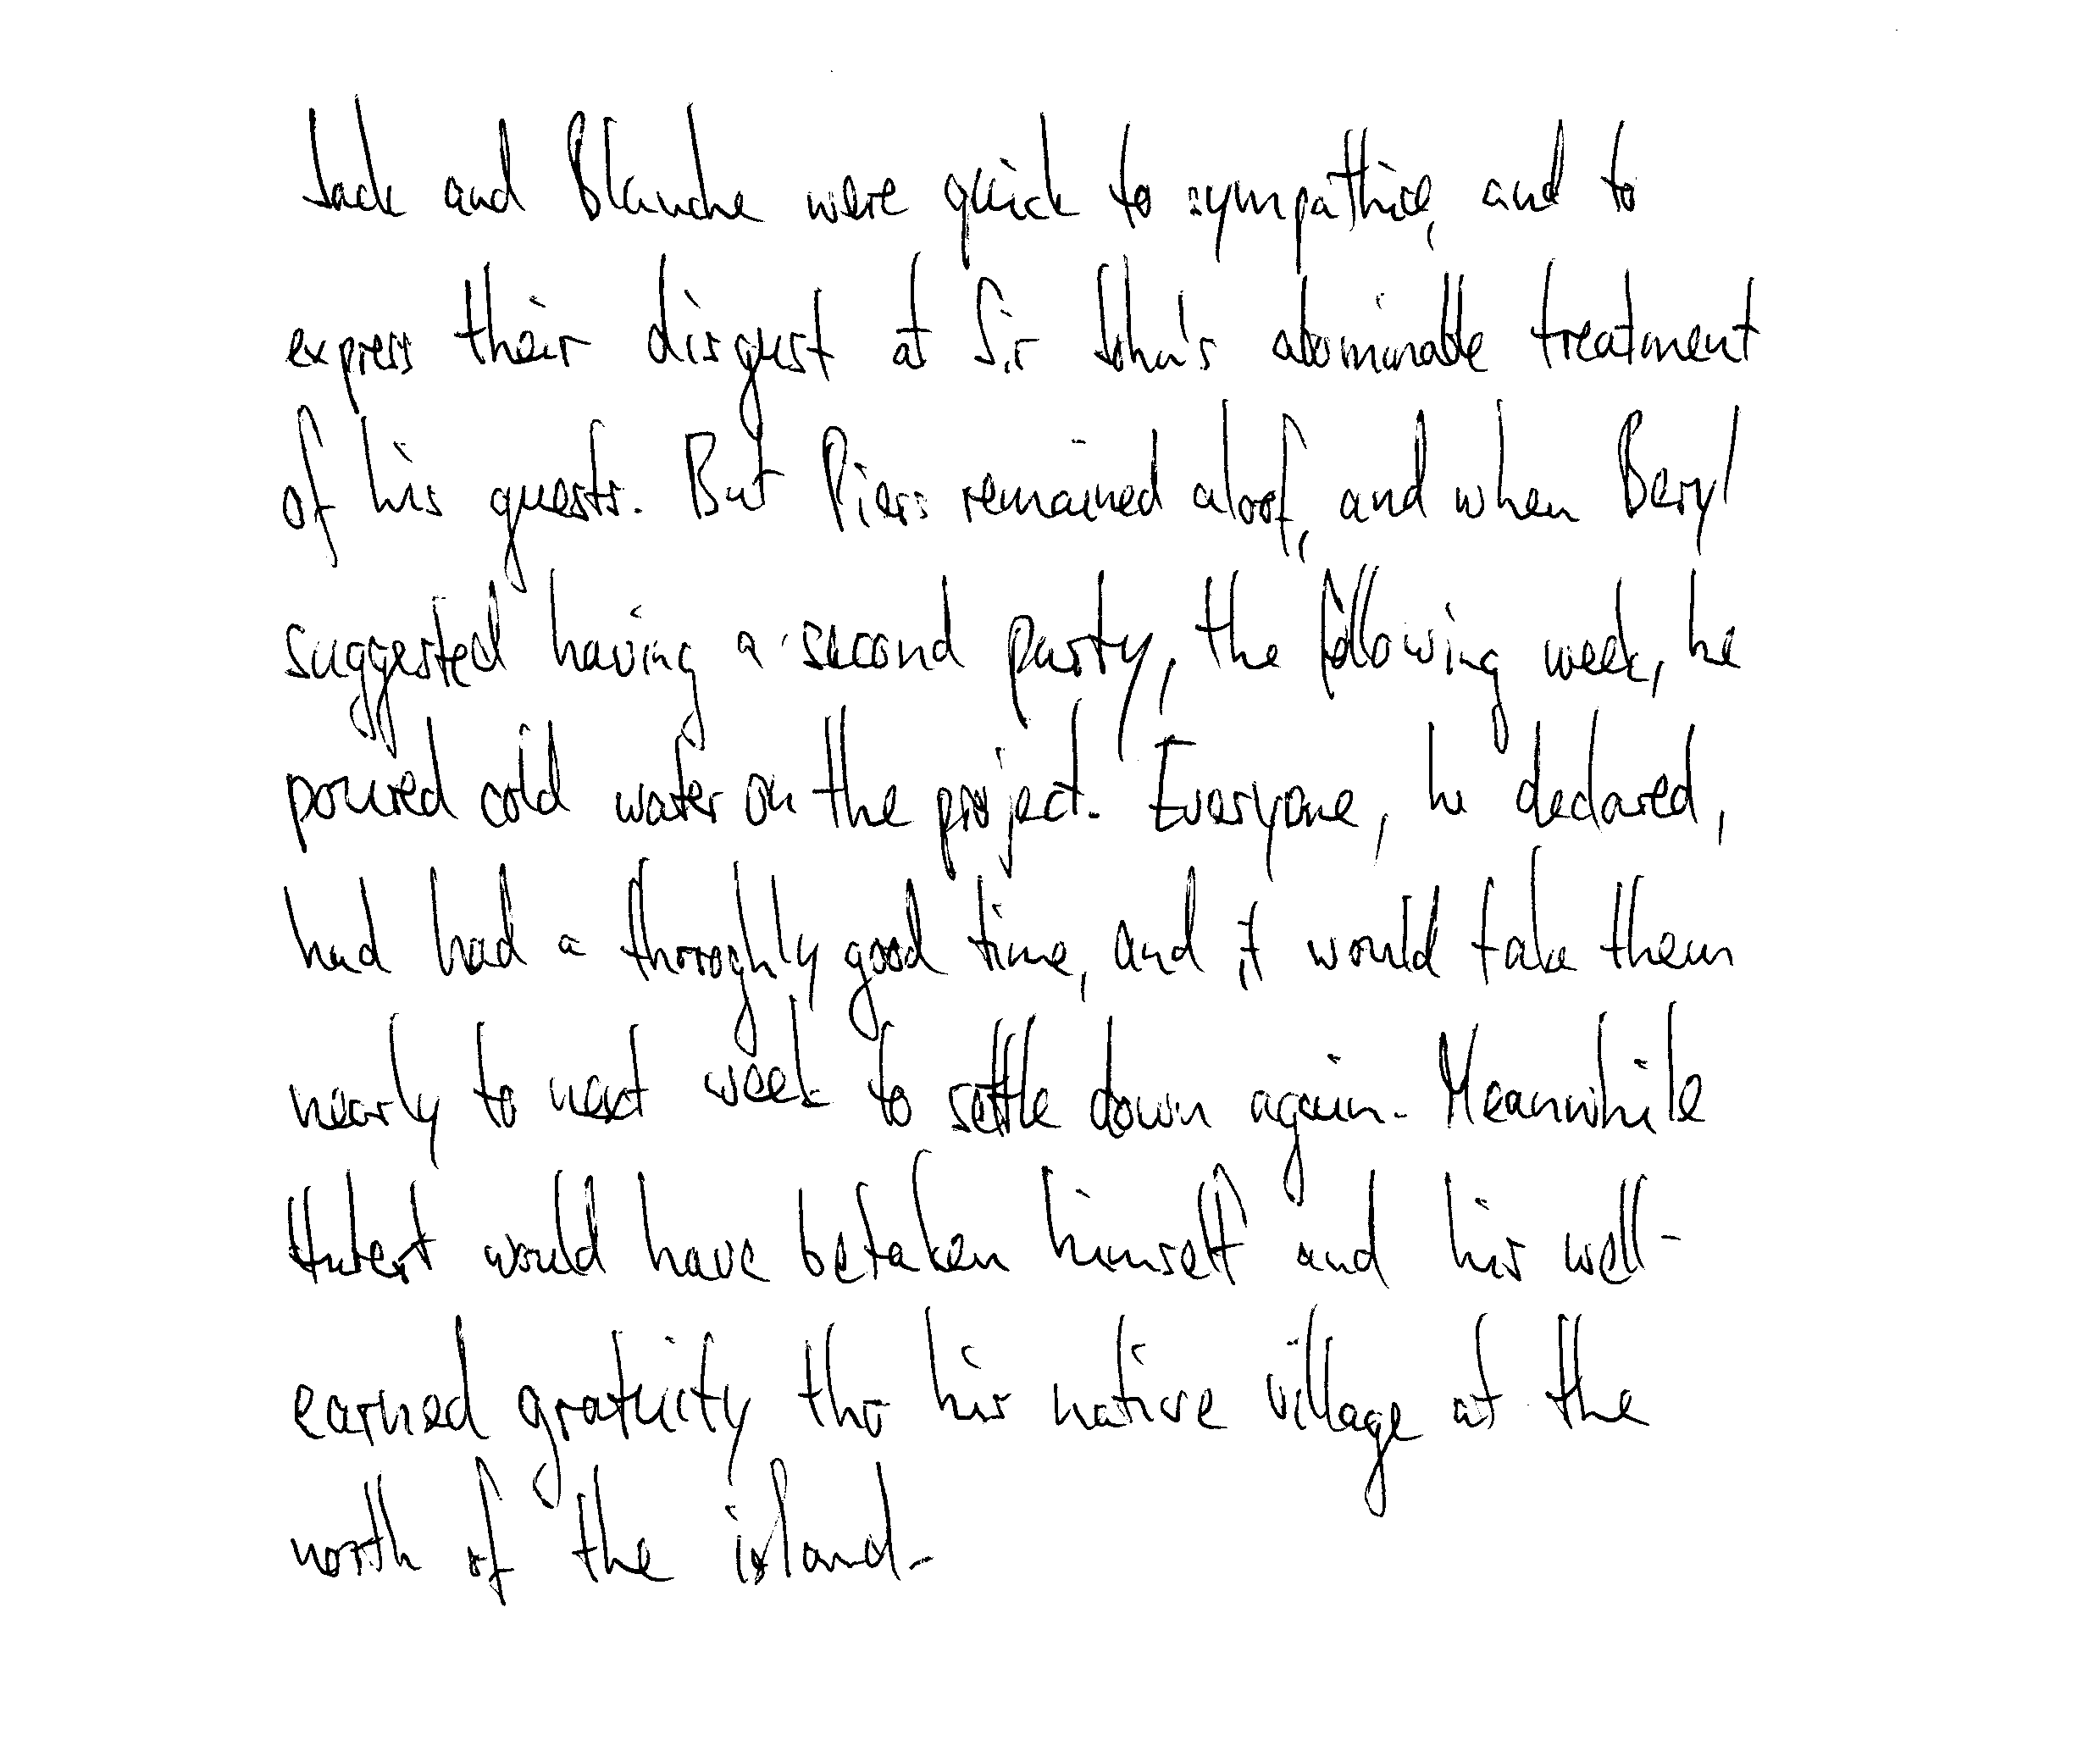 Jack and Blanche were quick to sympathice, and to
express their disgust at Sir John's abominable treatment
of his guests. But Piers remained aloof, and when Beryl
suggested having a second party, the following week, he
poured cold water on the project. Everyone, he declared,
had had a thoroghly good time, and it would take them
nearly to next week to settle down again. Meanwhile
Hubert would have betaken himself and his well-
earned gratuity tho his native village at the
north of the island.